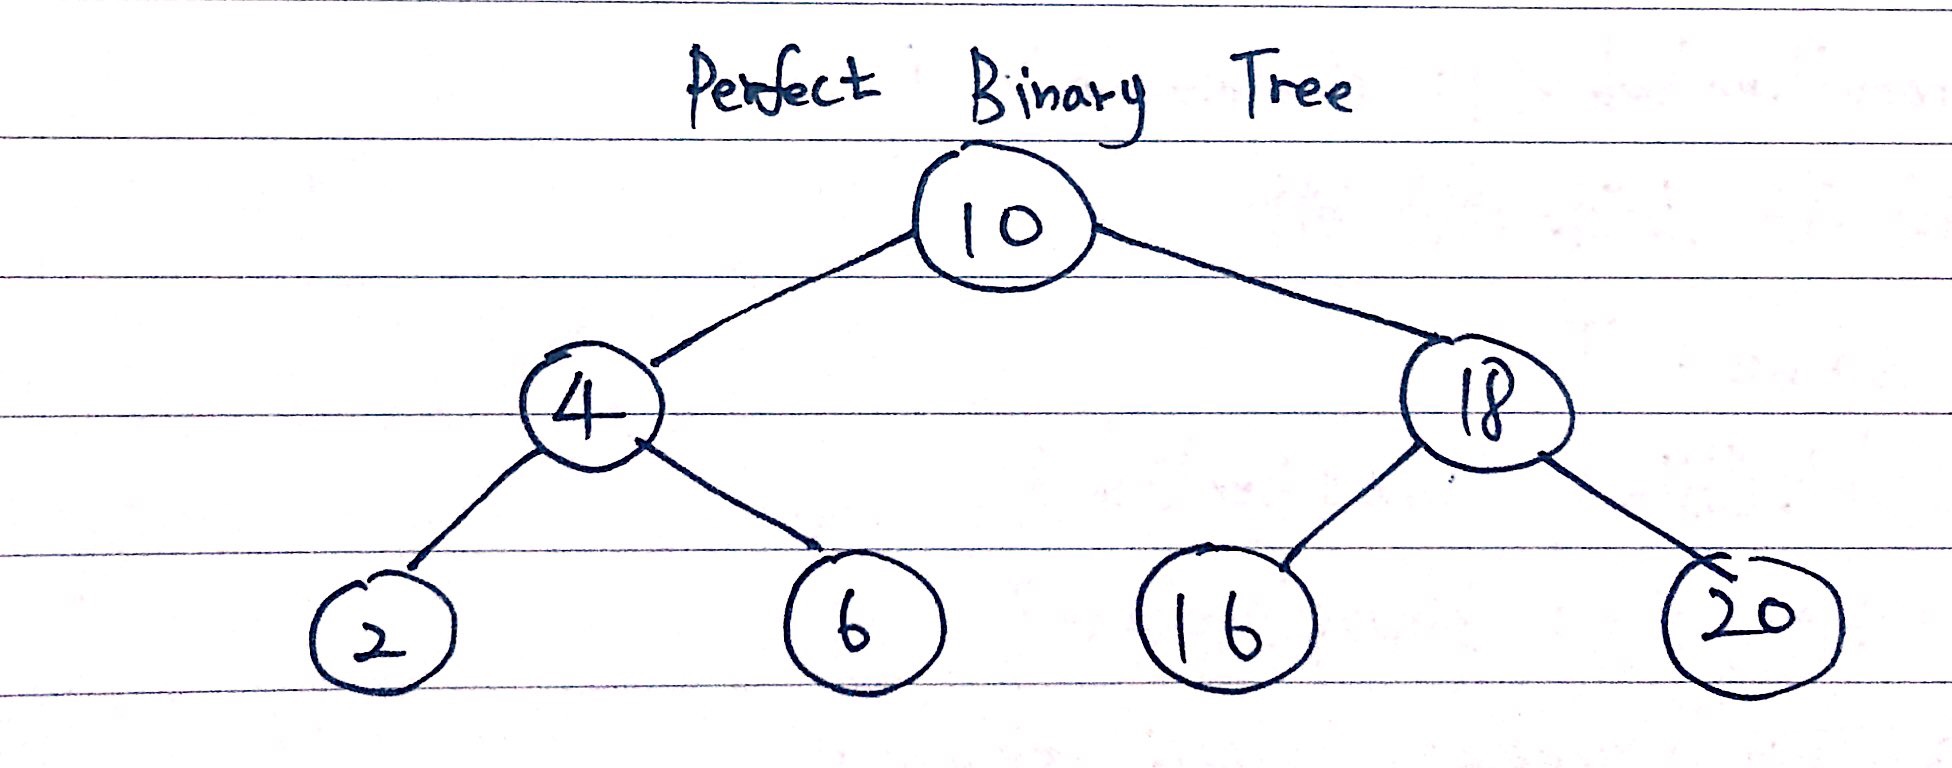 Perfect Binary Tree
10
4 18
2 6 16 20